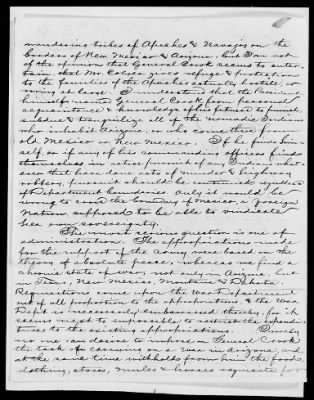 wandering tribes of Apaches & Navajos on the
borders of New Mexico & Arizona, but I am not
of the opinion that General Crook seems to enter-
tain, that Mr. Colyer gives refuge & protection
to the families of the Apaches actually hostile, or
roving at large. I understand that the President
himself named General Crook from personal
acquaintance & knowledge of his fitness to pursue,
subdue & tranquilize all of the nomadic Indians
who inhabit Arizona, or who come there from
old Mexico or New Mexico. If he finds him-
self or if any of his commanding officers finds
themselves in active pursuit of any Indians what-
ever that have done acts of murder & highway
robbery, pursuit should be continued regardless
of Department boundaries. Only it would be
wrong to cross the boundary of Mexico, a foreign
Nation supposed to be able to vindicate
her own sovereignty.
The more serious question is one of
administration. The appropriations made
for the support of the Army were based on the
theory of absolute peace; whereas we find a
chronic state of war, not only in Arizona, but
in Texas, New Mexico, Montana & Dakota.
Requisitions come upon the War Department
out of all proportion to the appropriations, & the War
Dept is necessarily embarrassed thereby, for it
seems next to impossible to restrict the expendi-
tures to the existing appropriations. Surely
no one can desire to impose on General Crook
the task of carrying on a war in Arizona, and
at the same time withhold from him the food,
clothing, stores, mules & horses requisite for